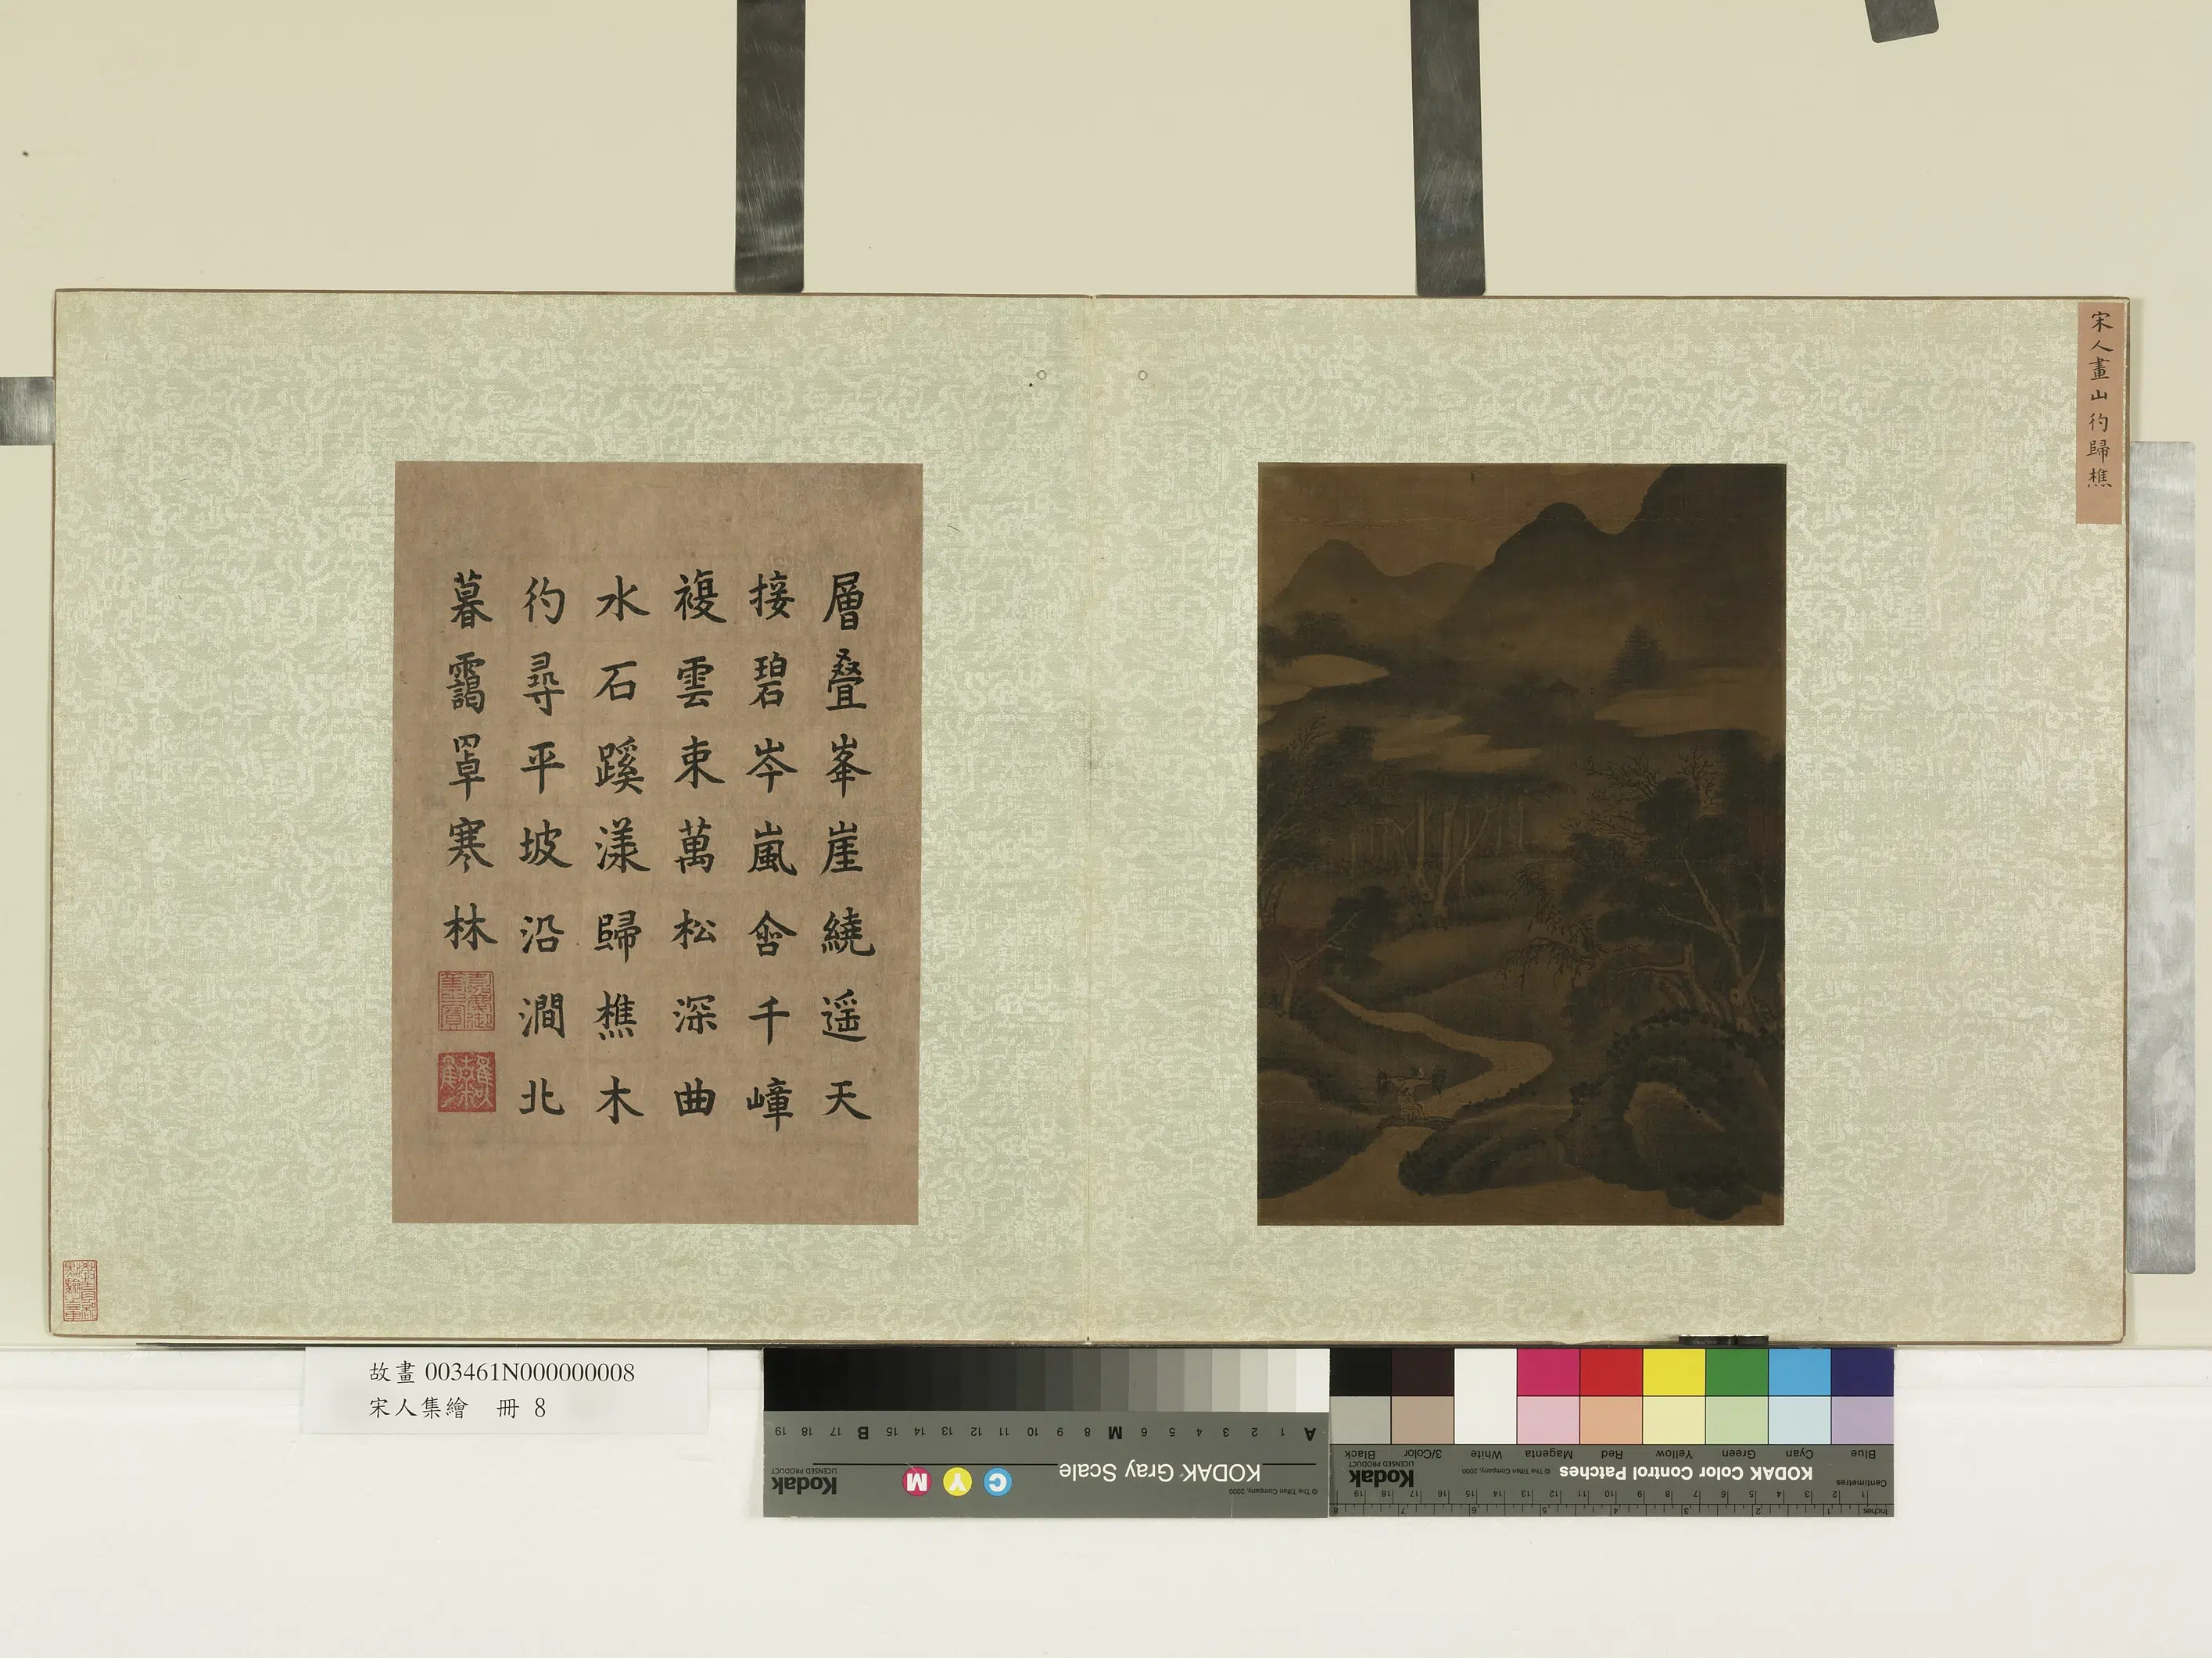 宋人畫山彴歸樵
層叠峯崖繞遥天
接碧岑嵐含千嶂
複雲束萬松深曲
水石蹊漾歸樵木
彴尋平坡沿澗北
暮靄罩寒林
教育部點驗之章
故畫 003461N000000008
宋人集繪 冊 8
KODAK Gray Scale
Kodak
LICENSED PRODUCT
C Y M
© The Tiffen Company, 2000
A 1 2 3 4 5 6 M 8 9 10 11 12 13 14 15 B 17 18 19
KODAK Color Control Patches
Kodak
LICENSED PRODUCT
© The Tiffen Company, 2000
Blue Cyan Green Yellow Red Magenta White 3/Color Black
Centimetres 1 2 3 4 5 6 7 8 9 10 11 12 13 14 15 16 17 18 19
Inches 1 2 3 4 5 6 7 8